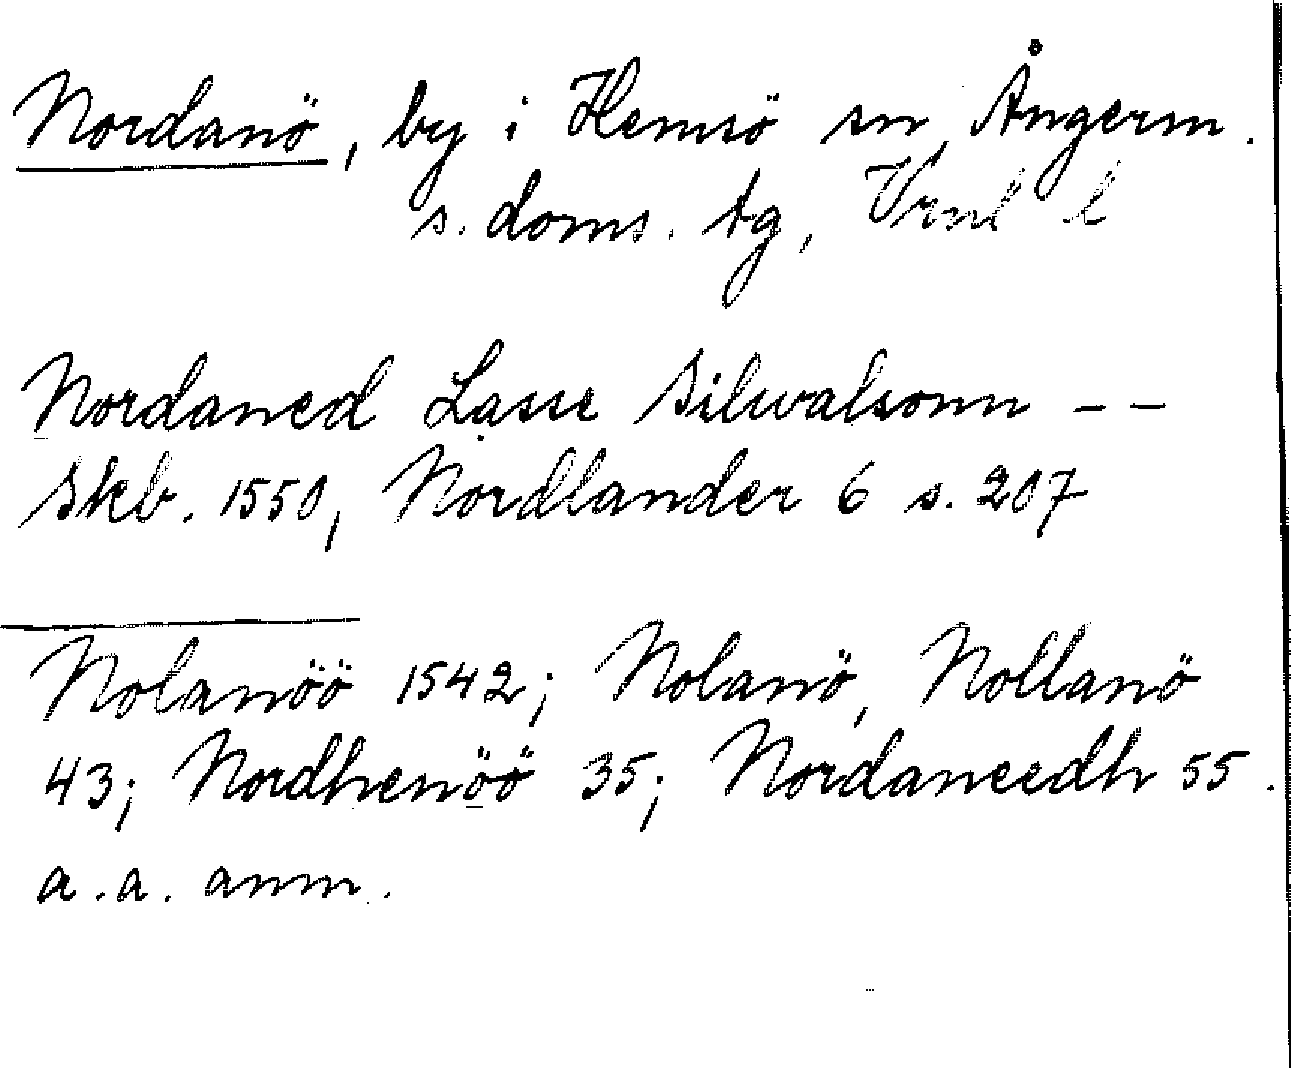 Nordanö, by i Hemsö sn, Ångerm.
s. doms. tg, Vrnl l
Nordaned Lasse Silwalsonn --
Skb. 1550, Nordlander 6 s. 207
Nolanöö 1542; Nolanö, Nollanö
43; Nordhenöö 35; Nordaneedh 55.
a.a. anm.